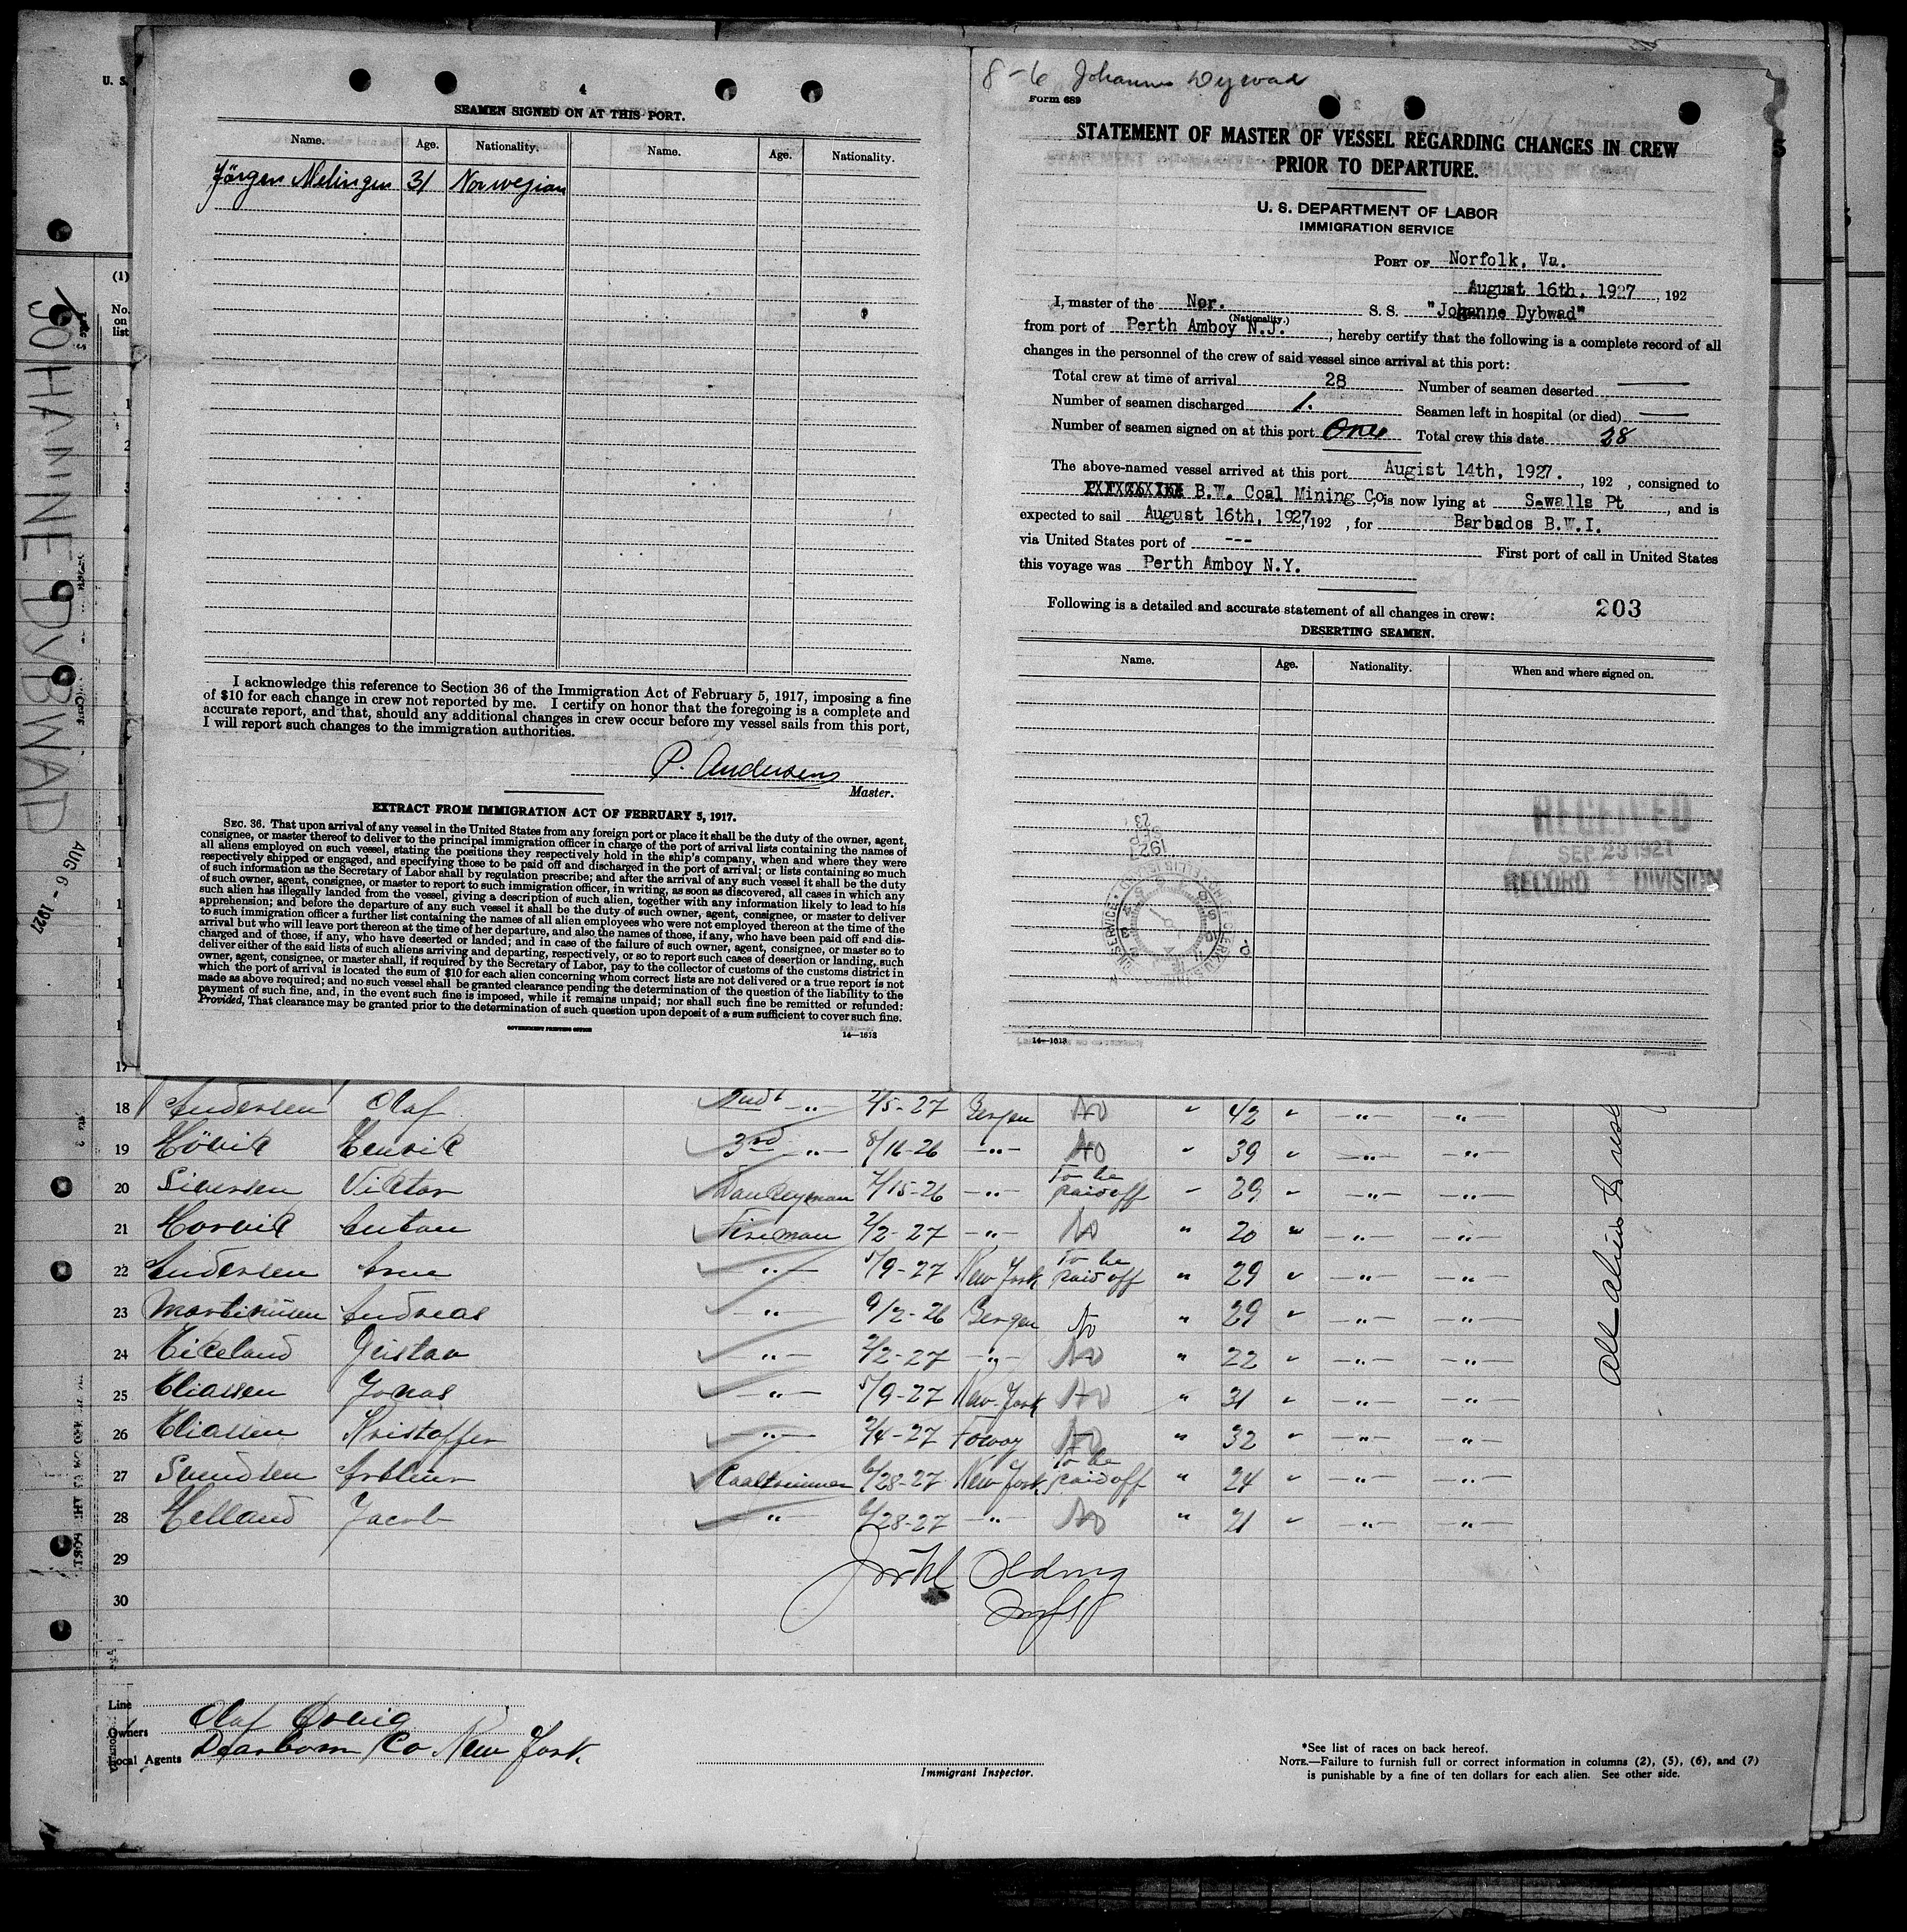 U. S.
4
SEAMEN SIGNED ON AT THIS PORT.
Name. Age. Nationality. Name. Age. Nationality.
Jörgen Melingen 31 Norwegian
I acknowledge this reference to Section 36 of the Immigration Act of February 5, 1917, imposing a fine
of $10 for each change in crew not reported by me. I certify on honor that the foregoing is a complete and
accurate report, and that, should any additional changes in crew occur before my vessel sails from this port,
I will report such changes to the immigration authorities.
P. Andersens
Master.
EXTRACT FROM IMMIGRATION ACT OF FEBRUARY 5, 1917.
SEC. 36. That upon arrival of any vessel in the United States from any foreign port or place it shall be the duty of the owner, agent,
consignee, or master thereof to deliver to the principal immigration officer in charge of the port of arrival lists containing the names of
all aliens employed on such vessel, stating the positions they respectively hold in the ship's company, when and where they were
respectively shipped or engaged, and specifying those to be paid off and discharged in the port of arrival; or lists containing so much
of such information as the Secretary of Labor shall by regulation prescribe; and after the arrival of any such vessel it shall be the duty
of such owner, agent, consignee, or master to report to such immigration officer, in writing, as soon as discovered, all cases in which any
such alien has illegally landed from the vessel, giving a description of such alien, together with any information likely to lead to his
apprehension; and before the departure of any such vessel it shall be the duty of such owner, agent, consignee, or master to deliver
to such immigration officer a further list containing the names of all alien employees who were not employed thereon at the time of the
arrival but who will leave port thereon at the time of her departure, and also the names of those, if any, who have been paid off and dis-
charged and of those, if any, who have deserted or landed; and in case of the failure of such owner, agent, consignee, or master so to
deliver either of the said lists of such aliens arriving and departing, respectively, or so to report such cases of desertion or landing, such
owner, agent, consignee, or master shall, if required by the Secretary of Labor, pay to the collector of customs of the customs district in
which the port of arrival is located the sum of $10 for each alien concerning whom correct lists are not delivered or a true report is not
made as above required; and no such vessel shall be granted clearance pending the determination of the question of the liability to the
payment of such fine, and, in the event such fine is imposed, while it remains unpaid; nor shall such fine be remitted or refunded:
Provided, That clearance may be granted prior to the determination of such question upon deposit of a sum sufficient to cover such fine.
GOVERNMENT PRINTING OFFICE
14—1613
8-6 Johanne Dybwad
Form 689
STATEMENT OF MASTER OF VESSEL REGARDING CHANGES IN CREW
PRIOR TO DEPARTURE.
U. S. DEPARTMENT OF LABOR
IMMIGRATION SERVICE
PORT OF Norfolk, Va.
August 16th, 1927, 192
I, master of the Nor. S. S. "Johanne Dybwad"
(Nationality.)
from port of Perth Amboy N.J., hereby certify that the following is a complete record of all
changes in the personnel of the crew of said vessel since arrival at this port:
Total crew at time of arrival 28 Number of seamen deserted
Number of seamen discharged 1. Seamen left in hospital (or died)
Number of seamen signed on at this port One Total crew this date 28
The above-named vessel arrived at this port Augist 14th, 1927. , 192 , consigned to
B.W. Coal Mining Co, is now lying at Sewalls Pt , and is
expected to sail August 16th, 1927, 192 , for Barbados B.W.I.
via United States port of --- First port of call in United States
this voyage was Perth Amboy N.Y.
Following is a detailed and accurate statement of all changes in crew: 203
DESERTING SEAMEN.
Name. Age. Nationality. When and where signed on.
RECEIVED
SEP 23 1927
RECORD DIVISION
1927
SEP
23
14—1613
JOHANNE DYBWAD AUG 6 - 1927
(1)
No. on list
17
18 Andersen Olaf 2nd -"- 2/5-27 Bergen No " 42 " -"- -"-
19 Hövik Henrik 3rd -"- 8/16-26 -"- No " 39 " -"- -"-
20 Siversen Victor Donkeyman 7/15-26 -"- To be paid off " 29 " -"- -"-
21 Horvik Anton Fireman 2/2-27 -"- No " 20 " -"- -"-
22 Andersen Arne -"- 5/9-27 New York To be paid off " 29 " -"- -"-
23 Martinusen Andreas -"- 9/2-26 Bergen No " 29 " -"- -"-
24 Eikeland Gustav -"- 2/2-27 -"- No " 22 " -"- -"-
25 Eliassen Jonas -"- 5/9-27 New York No " 31 " -"- -"-
26 Eliassen Kristoffer -"- 2/4-27 No " 32 " -"- -"-
27 Svendsen Arthur Coaltrimmer 6/28-27 New York To be paid off " 24 " -"- -"-
28 Helland Jacob -"- 6/28-27 -"- No " 21 " -"- -"-
29
30
Line
Owners Olaf Orvig
Local Agents Dearborn Co New York
Immigrant Inspector.
*See list of races on back hereof.
NOTE.—Failure to furnish full or correct information in columns (2), (5), (6), and (7)
is punishable by a fine of ten dollars for each alien. See other side.